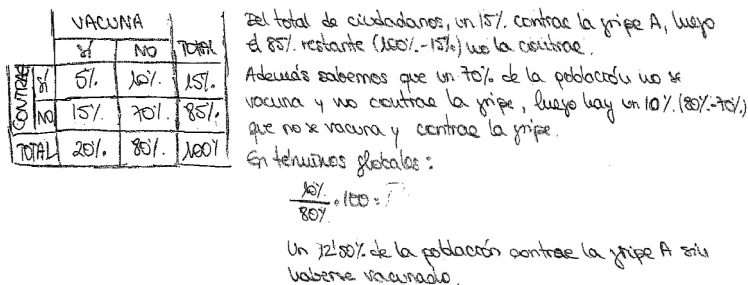 VACUNA
SÍ NO TOTAL
CONTRAE SÍ 5% 10% 15%
NO 15% 70% 85%
TOTAL 20% 80% 100%
Del total de ciudadanos, un 15% contrae la gripe A, luego
el 85% restante (100%-15%) no la contrae.
Además sabemos que un 70% de la población no se
vacuna y no contrae la gripe, luego hay un 10% (80%-70%)
que no se vacuna y contrae la gripe.
En términos globales:
10%
80% · 100 =
Un 12'50% de la población contrae la gripe A sin
haberse vacunado.